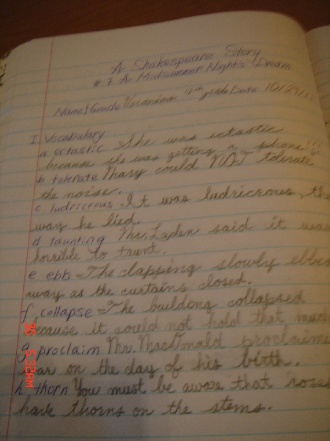 A Shakespeare Story
# 3 A Midsummer Night's Dream
Name/Grade Veronina 4th grade Date 10/21/
I. Vocabulary
a. ectastic She was ectastic
because she was getting a phone
b. tolerate Mary could NOT tolerate
the noise.
c. ludricrous It was ludricrous, the
way he lied.
d. taunting Mr. Laden said it was
horrible to taunt.
e. ebb The clapping slowly ebbed
away as the curtains closed.
f. collapse The building collapsed
because it could not hold that much
g. proclaim Mr. MacDonald proclaime
war on the day of his birth.
h. thorn You must be aware that roses
have thorns on the stems.